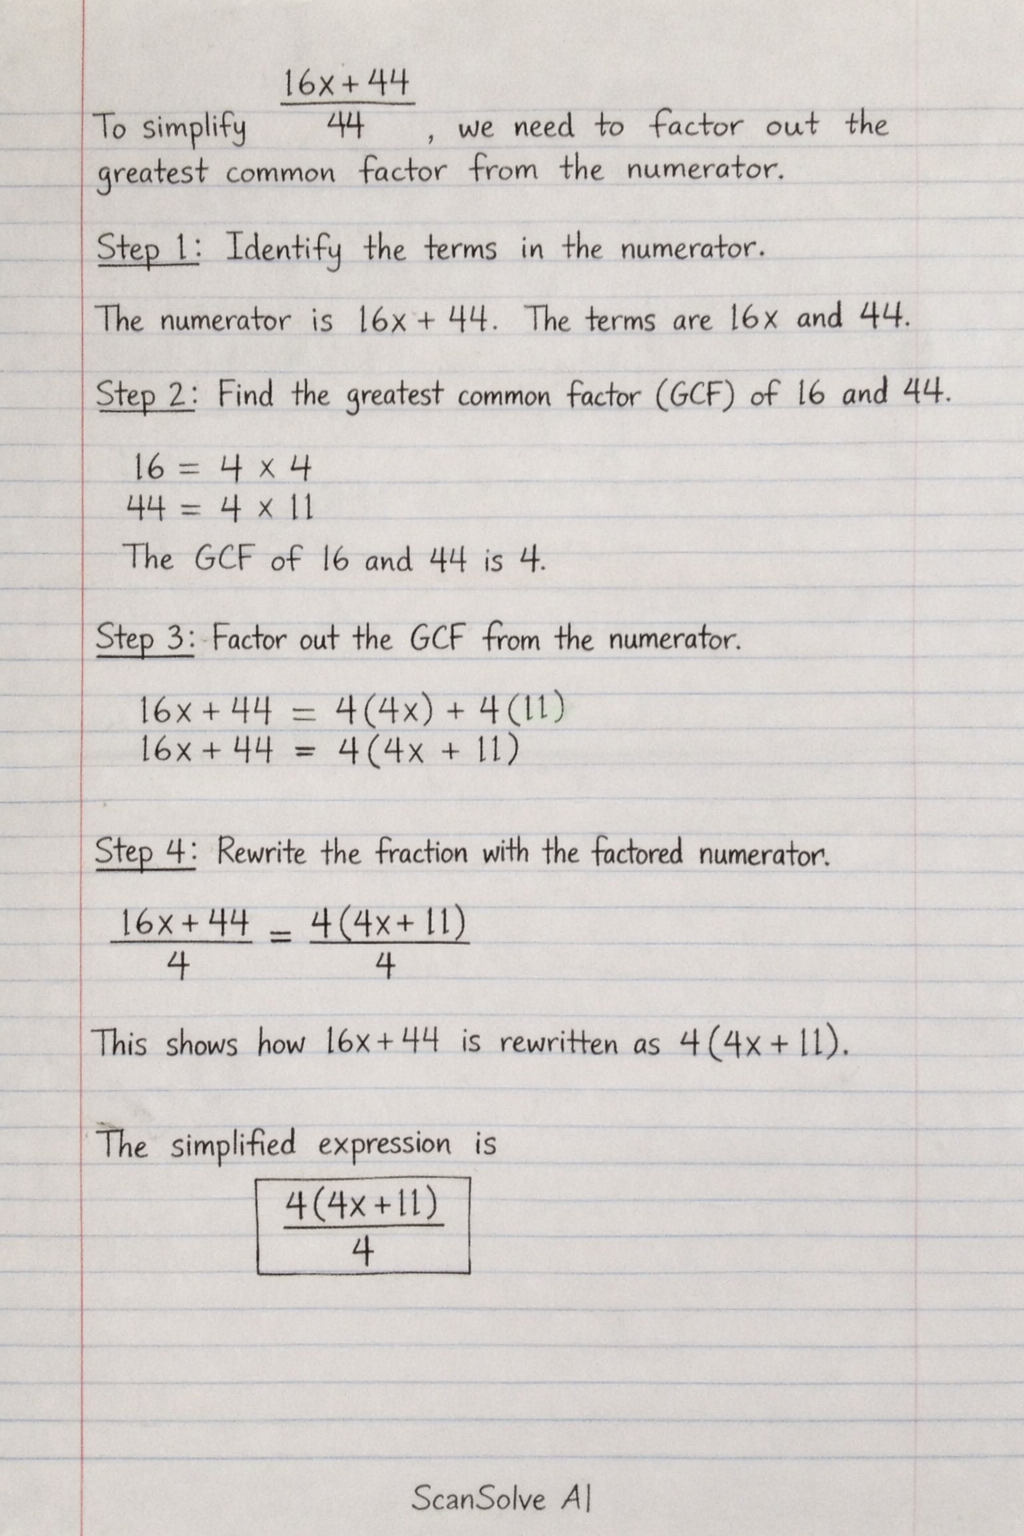 16x + 44
To simplify 44 , we need to factor out the
greatest common factor from the numerator.
Step 1: Identify the terms in the numerator.
The numerator is 16x + 44. The terms are 16x and 44.
Step 2: Find the greatest common factor (GCF) of 16 and 44.
16 = 4 x 4
44 = 4 x 11
The GCF of 16 and 44 is 4.
Step 3: Factor out the GCF from the numerator.
16x + 44 = 4(4x) + 4(11)
16x + 44 = 4(4x + 11)
Step 4: Rewrite the fraction with the factored numerator.
16x + 44 = 4(4x + 11)
4 4
This shows how 16x + 44 is rewritten as 4(4x + 11).
The simplified expression is
4(4x + 11)
4
ScanSolve AI